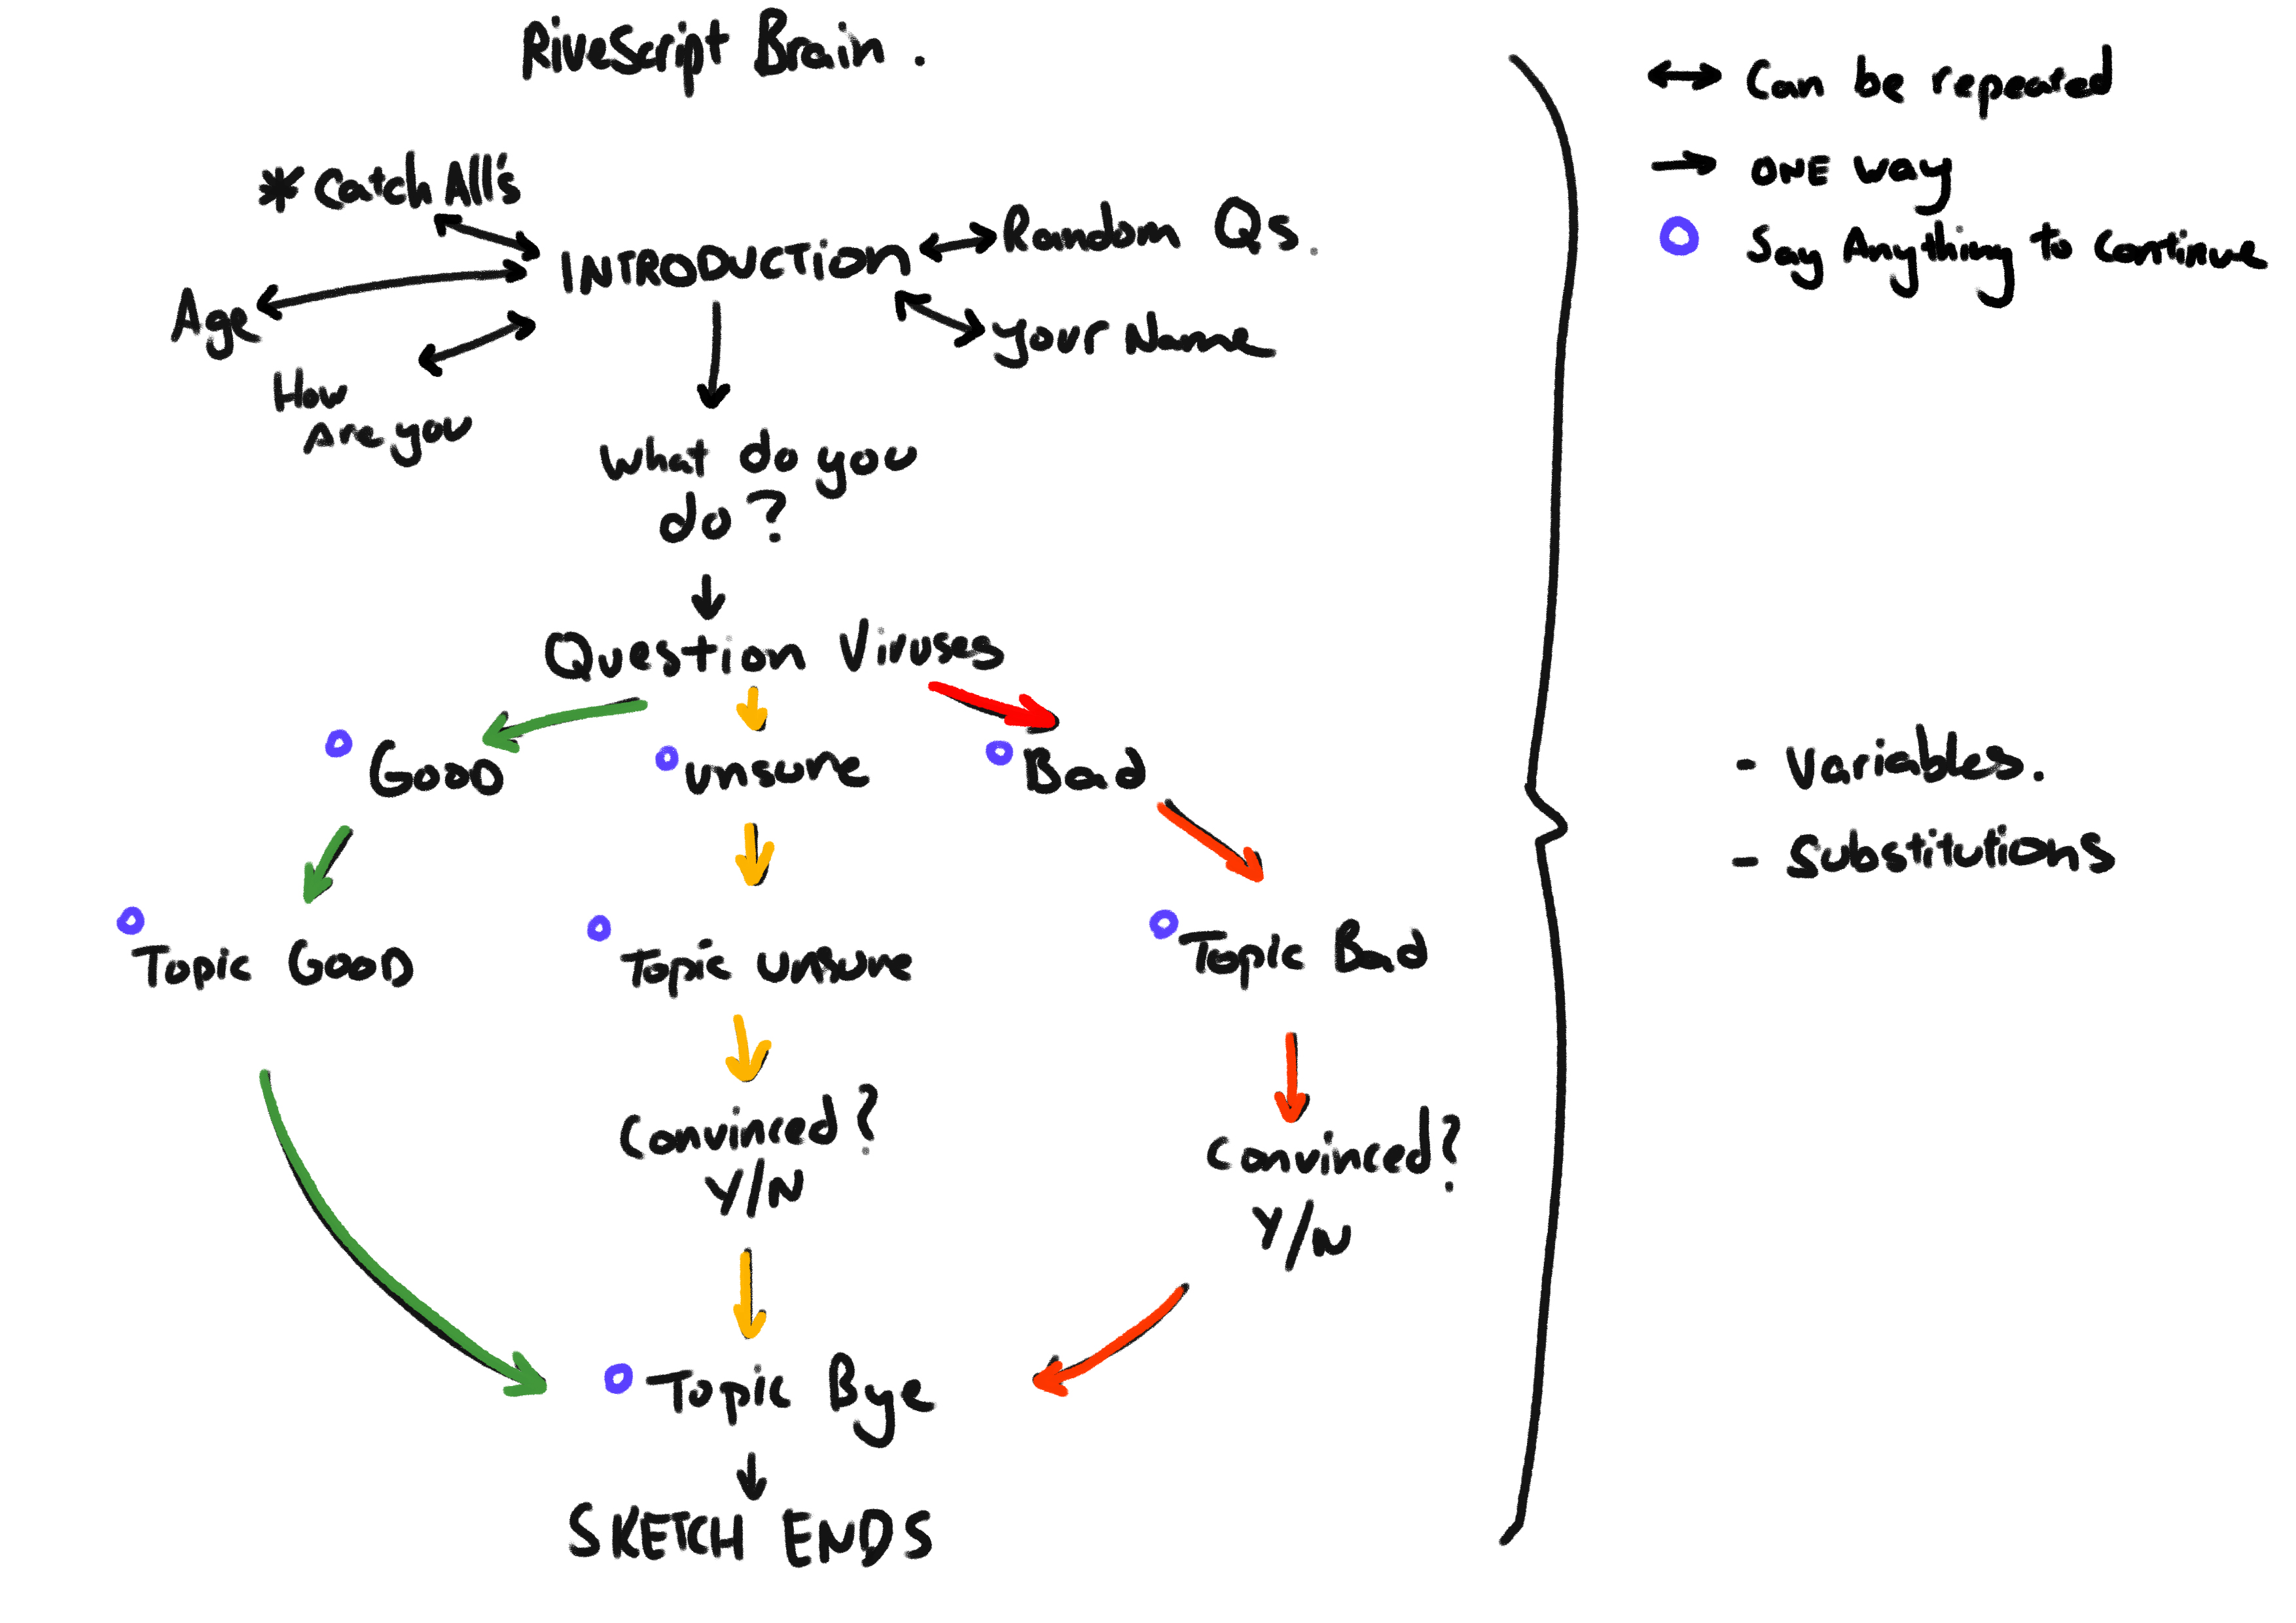 RiveScript Brain.
* Catch All's
Random Qs.
INTRODUCTION
Age
Your Name
How
Are you
What do you
do?
Question Viruses
Good
unsure
Bad
Topic Good
Topic unsure
Topic Bad
Convinced?
Y/N
Convinced?
Y/N
Topic Bye
SKETCH ENDS
Can be repeated
ONE way
Say Anything to Continue
- Variables.
- Substitutions